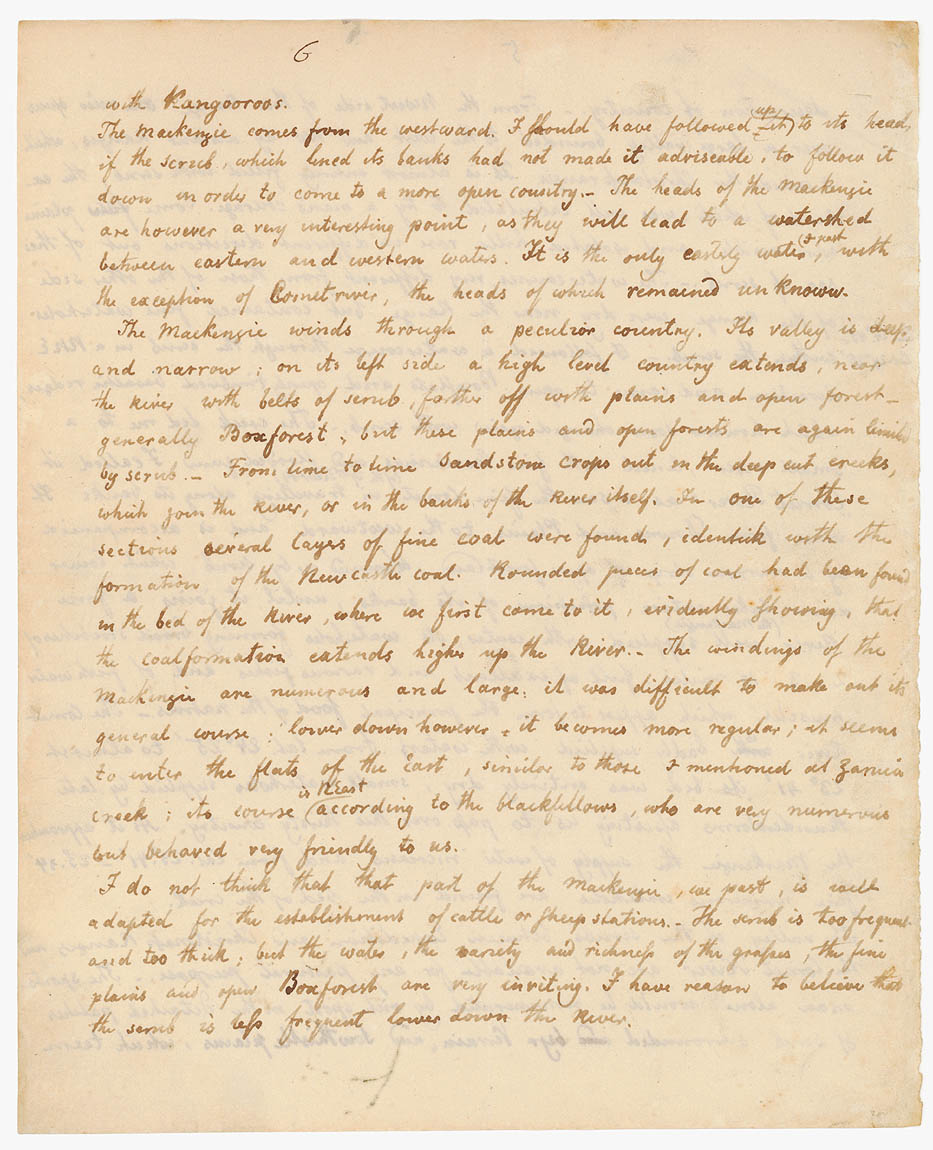 6
with Kangooroos.
The Mackenzie comes from the westward. I should have followed (up it) to its head,
if the scrub, which lined its banks had not made it adviseable, to follow it
down in order to come to a more open country. - The heads of the Mackenzie
are however a very interesting point, as they will lead to a watershed
between eastern and western waters. It is the only easterly water (I past, with
the exception of Cometriver, the heads of which remained unknown.
The Mackenzie winds through a peculior country. Its valley is deep
and narrow; on its left side a high level country extends, near
the river with belts of scrub, farther off with plains and open forest -
generally Boxforest, but these plains and open forests are again limited
by scrub. - From time to time Sandstone crops out in the deep cut creeks,
which join the River, or in the banks of the River itself. In one of these
sections several layers of fine coal were found, identick with the
formation of the Newcastle coal. Rounded pieces of coal had been found
in the bed of the River, where we first come to it, evidently showing, that
the coalformation extends higher up the River. - The windings of the
Mackenzie are numerous and large; it was difficult to make out its
general course; lower down however, it becomes more regular; it seems
to enter the flats of the East, similar to those I mentioned at Zamia
creek; its course (is N.east according to the blackfellows, who are very numerous
but behaved very friendly to us.
I do not think that that part of the Mackenzie, we past, is well
adapted for the establishment of cattle or sheep stations. - The scrub is too frequent
and too thick; but the water, the variety and richness of the grasses, the fine
plains and open Boxforest are very inviting. I have reason to believe that
the scrub is less frequent lower down the River.